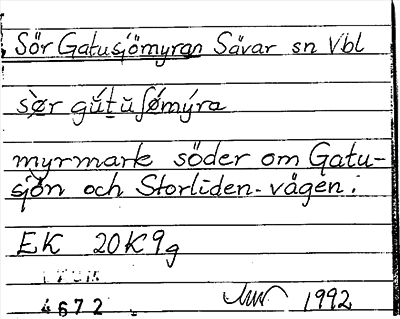 Sör Gatusjömyran Sävar sn Vbl
sø̀r gú̀tŭʃǿmýra
myrmark söder om Gatu-
sjön och Storliden-vägen.
EK 20K9g
4672
1992